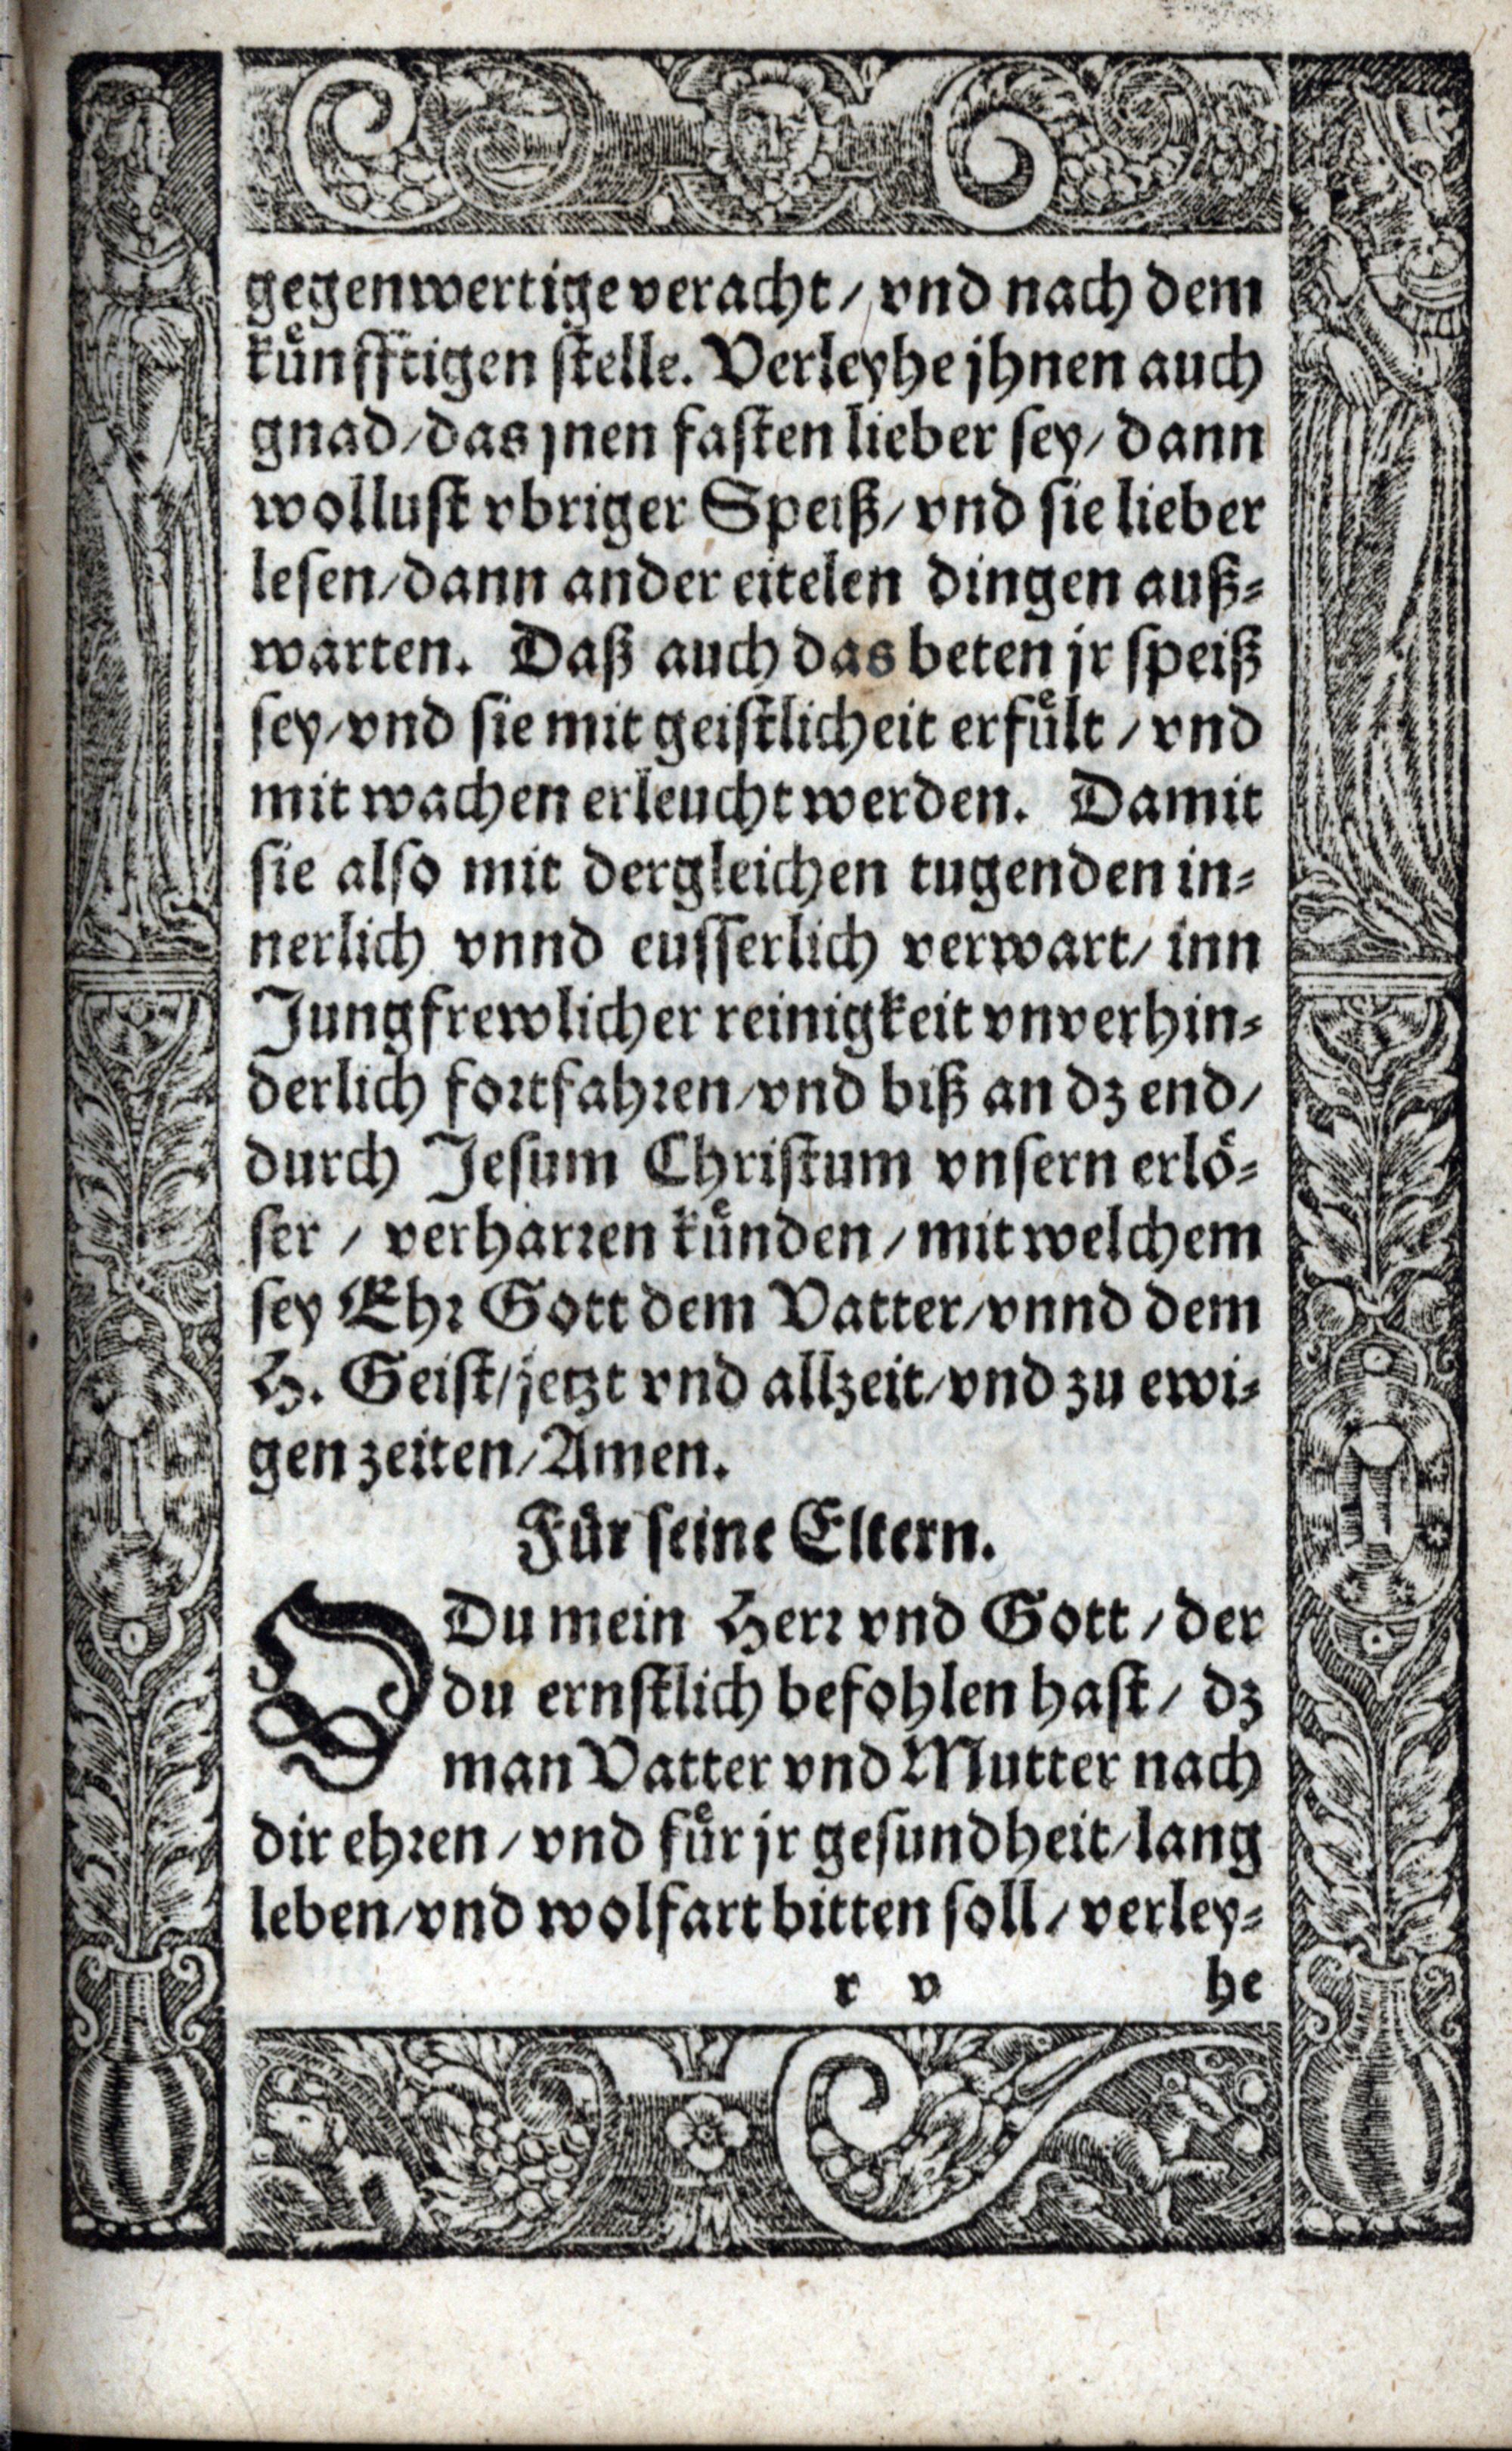 gegenwertige veracht / vnd nach dem
kuͤnfftigen stelle. Verleyhe jhnen auch
gnad / das jnen fasten lieber sey / dann
wollust vbriger Speiß / vnd sie lieber
lesen / dann ander eitelen dingen auß⸗
warten. Daß auch das beten jr speiß
sey / vnd sie mit geistlicheit erfuͤlt / vnd
mit wachen erleucht werden. Damit
sie also mit dergleichen tugenden in⸗
nerlich vnnd eusserlich verwart / inn
Jungfrewlicher reinigkeit vnverhin⸗
derlich fortfahren / vnd biß an dz end /
durch Jesum Christum vnsern erloͤ⸗
ser / verharren kuͤnden / mit welchem
sey Ehr Gott dem Vatter / vnnd dem
H. Geist / jetzt vnd allzeit / vnd zu ewi⸗
gen zeiten / Amen.
Fuͤr seine Eltern.
O Du mein Herr vnd Gott / der
du ernstlich befohlen hast / dz
man Vatter vnd Mutter nach
dir ehren / vnd fuͤr jr gesundheit / lang
leben / vnd wolfart bitten soll / verley⸗
r v he